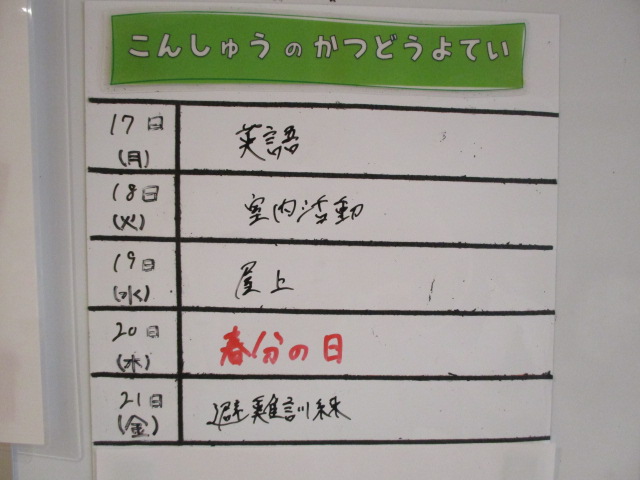 こんしゅうのかつどうよてい
17日
(月)
英語
18日
(火)
室内活動
19日
(水)
屋上
20日
(木)
春分の日
21日
(金)
避難訓練